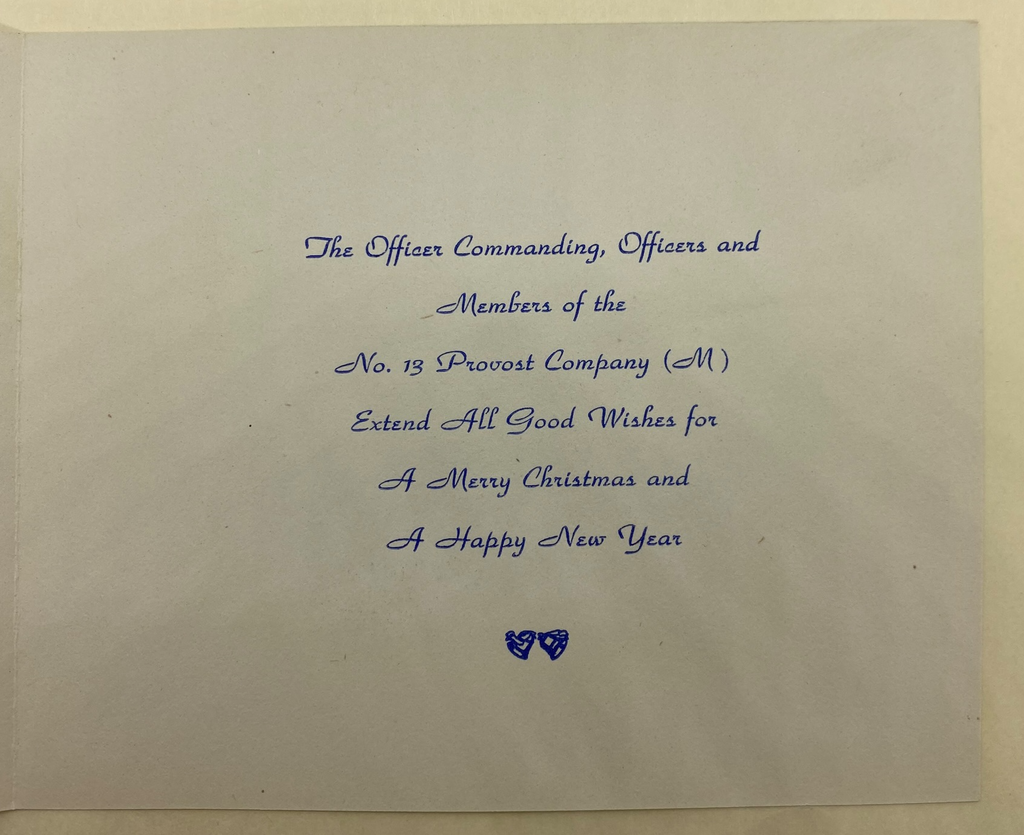 The Officer Commanding, Officers and
Members of the
No. 13 Provost Company (M)
Extend All Good Wishes for
A Merry Christmas and
A Happy New Year